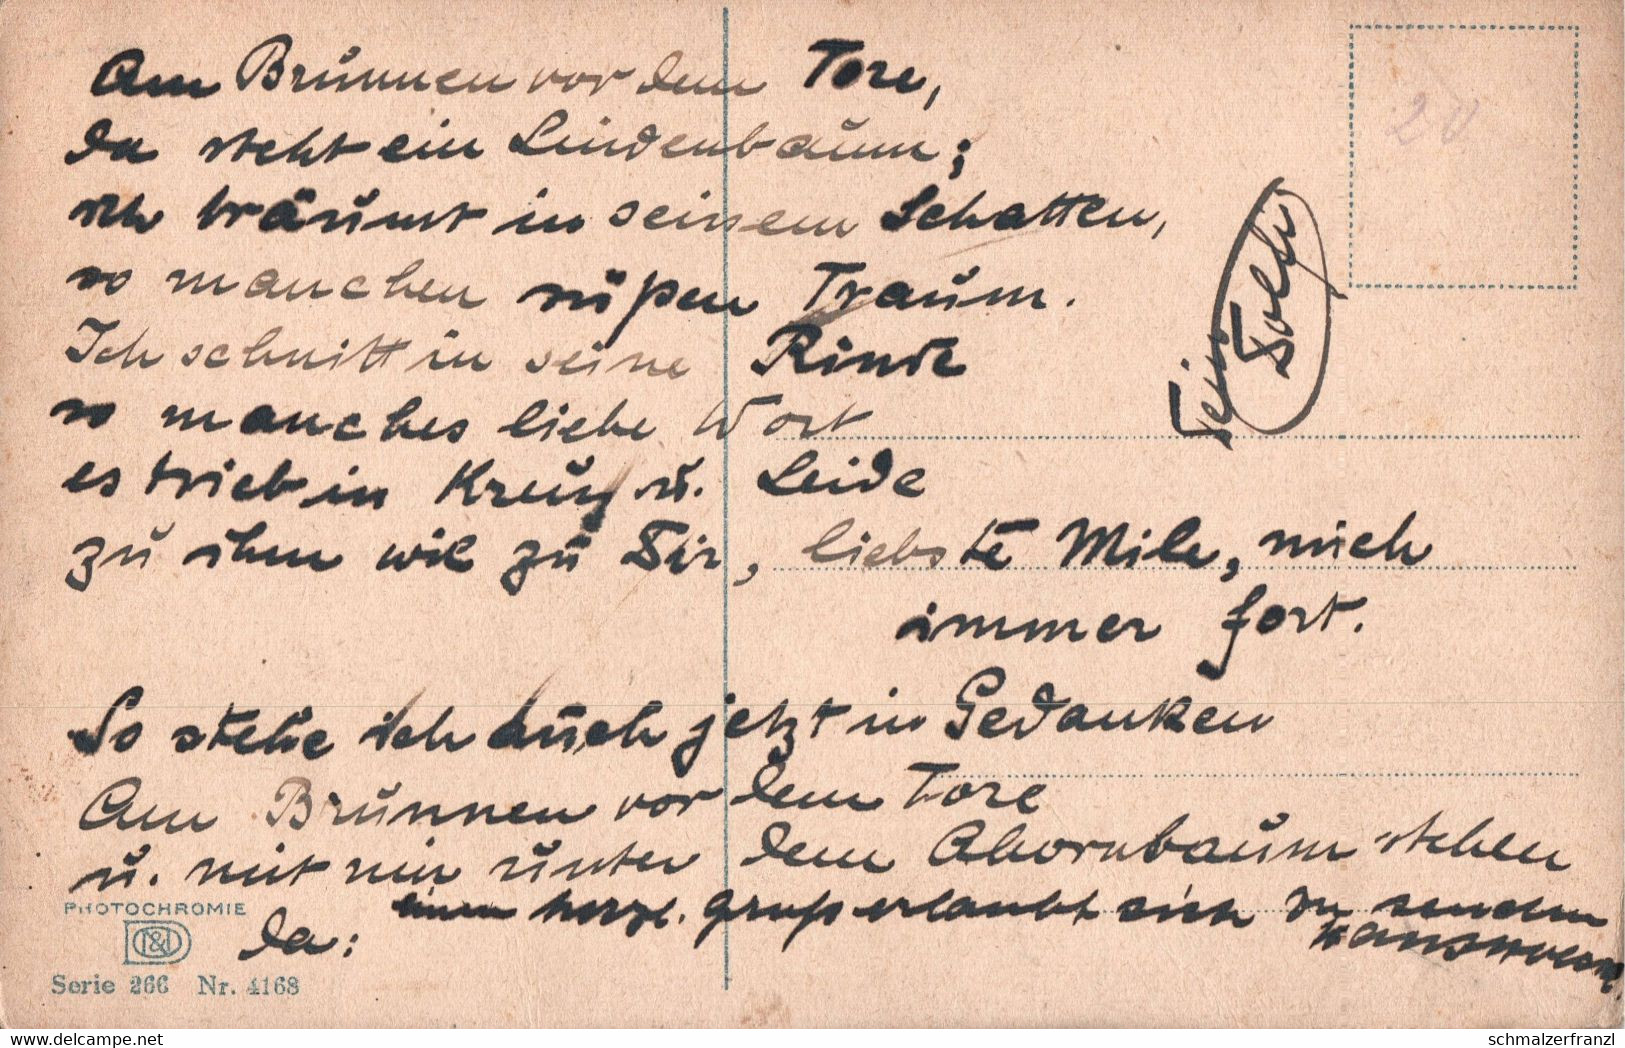 Am Brunnen vor dem Tore,
da steht ein Lindenbaum;
ich träumt in seinem Schatten,
so manchen süßen Traum.
Ich schnitt in seine Rinde
so manches liebe Wort
es trieb in Kreuz u. Leide
zu ihm wie zu Dir, liebste Mile, mich
immer fort.
So stehe ich auch jetzt in Gedanken
Am Brunnen vor dem Tore
u. mit mir unter dem Ahornbaum stehen
da:
einen herzl. Gruß erlaubt sich zu senden
Dein
Dolfi
20
PHOTOCHROMIE
Serie 266 Nr. 4168
www.delcampe.net
schmalzerfranzl